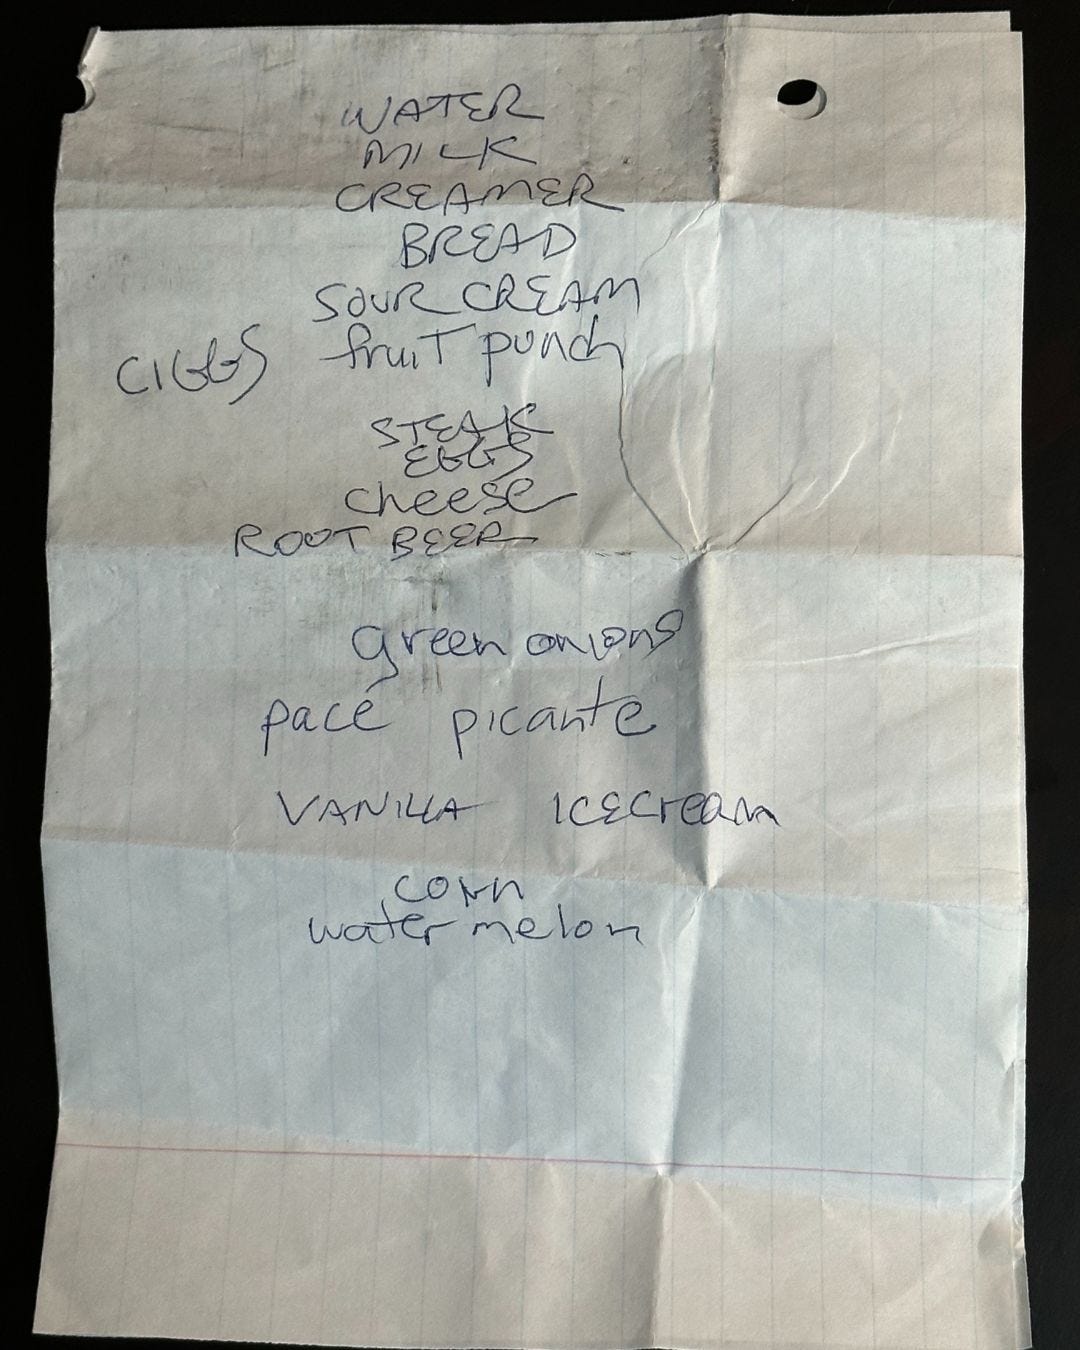 WATER
MILK
CREAMER
BREAD
SOUR CREAM
CIGGS fruit punch
STEAK
EGGS
cheese
ROOT BEER
green onions
pace picante
VANILLA ICECream
corn
water melon